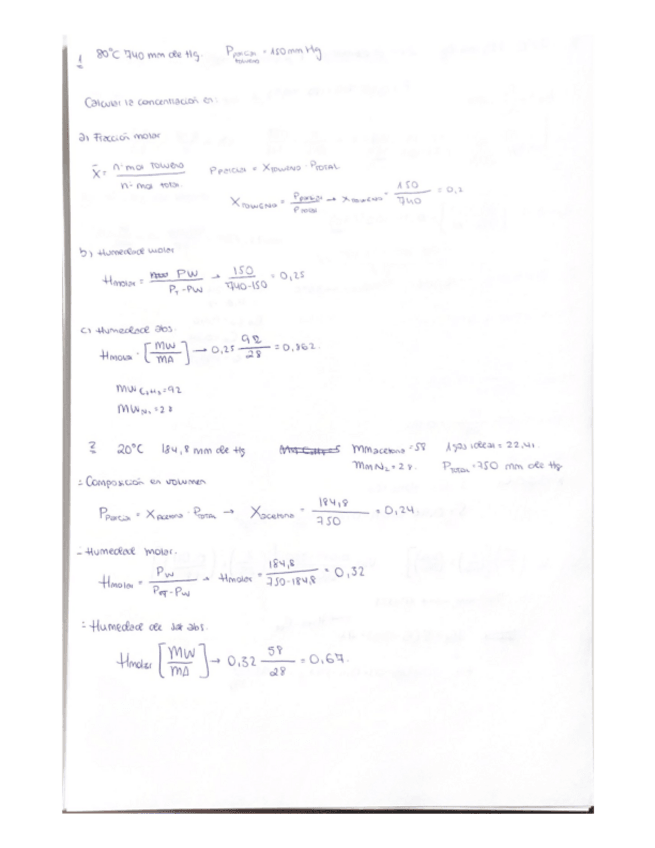 1 80°C 740 mm de Hg. P parcial tolueno = 150 mm Hg
Calcular la concentración en:
a) Fracción molar
X̄ = nº mol tolueno / nº mol total P parcial = X tolueno · P total
X tolueno = P parcial / P total → X tolueno = 150 / 740 = 0,2
b) Humedad molar
H molar = PW / PT - PW → 150 / 740-150 = 0,25
c) Humedad abs.
H molar · [MW / MA] → 0,25 92 / 28 = 0,862.
MW C7H8 = 92
MW N2 = 28
2 20°C 184,8 mm de Hg Mm acetona = 58 1 gas ideal = 22,4l.
Mm N2 = 28. P total = 750 mm de Hg
- Composición en volumen
P parcial = X acetona · P total → X acetona = 184,8 / 750 = 0,24
- Humedad molar.
H molar = PW / PT - PW → H molar = 184,8 / 750-184,8 = 0,32
- Humedad de abs.
H molar [MW / MA] → 0,32 58 / 28 = 0,67.